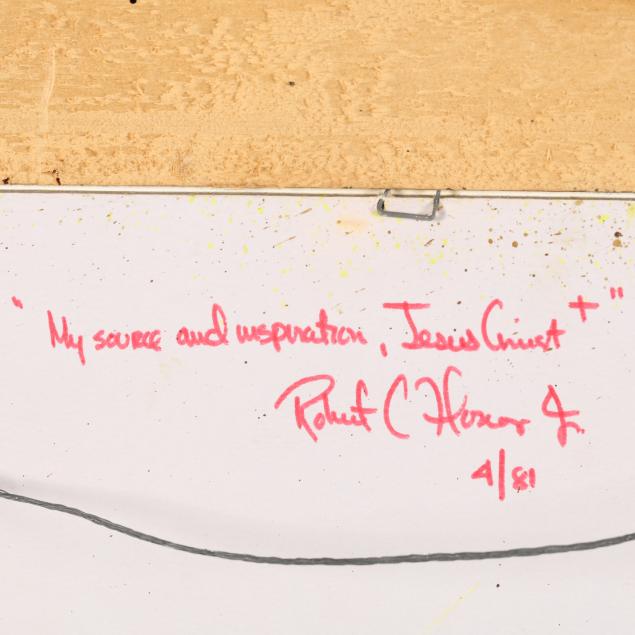 " My source and inspiration, Jesus Christ + "
Robert C Honor Jr.
4/81